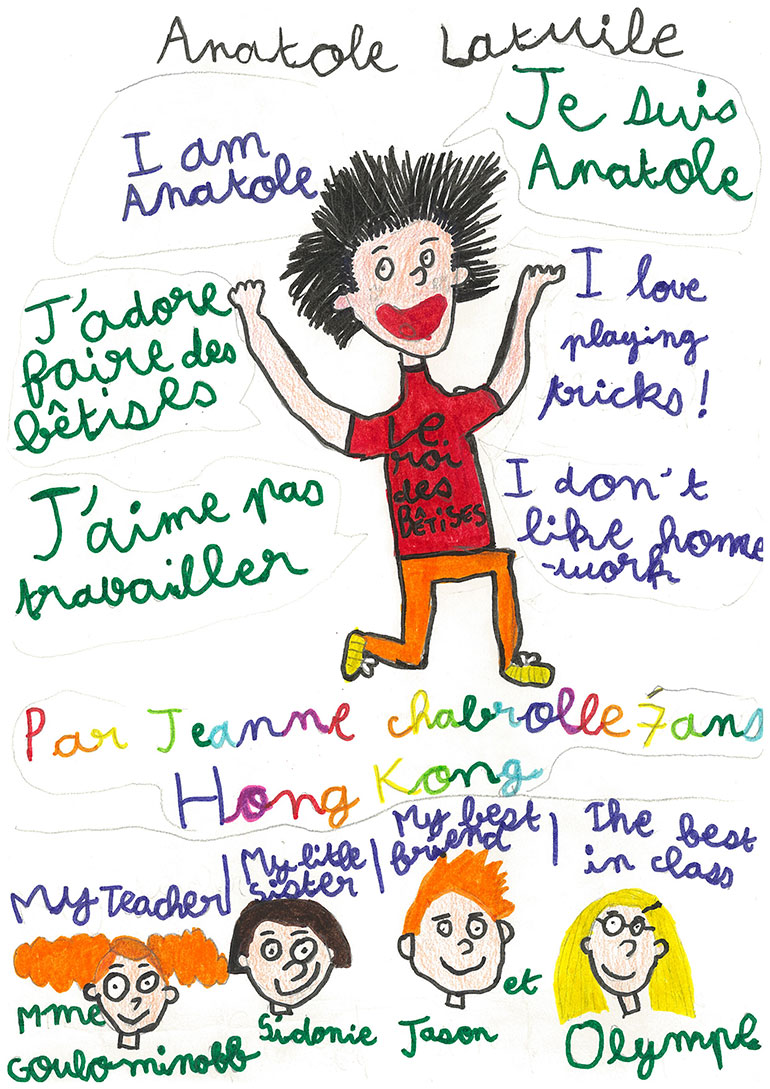 Anatole Latuile
I am
Anatole
Je suis
Anatole
J'adore
faire des
bêtises
I love
playing
tricks!
Le
roi
des
BÊTISES
J'aime pas
travailler
I don't
like home
-work
Par Jeanne chabrolle 7ans
Hong Kong
My Teacher
My litle
Sister
My best
friend
The best
in class
Mme
Goulominobb
Sidonie
Jason
et
Olympe